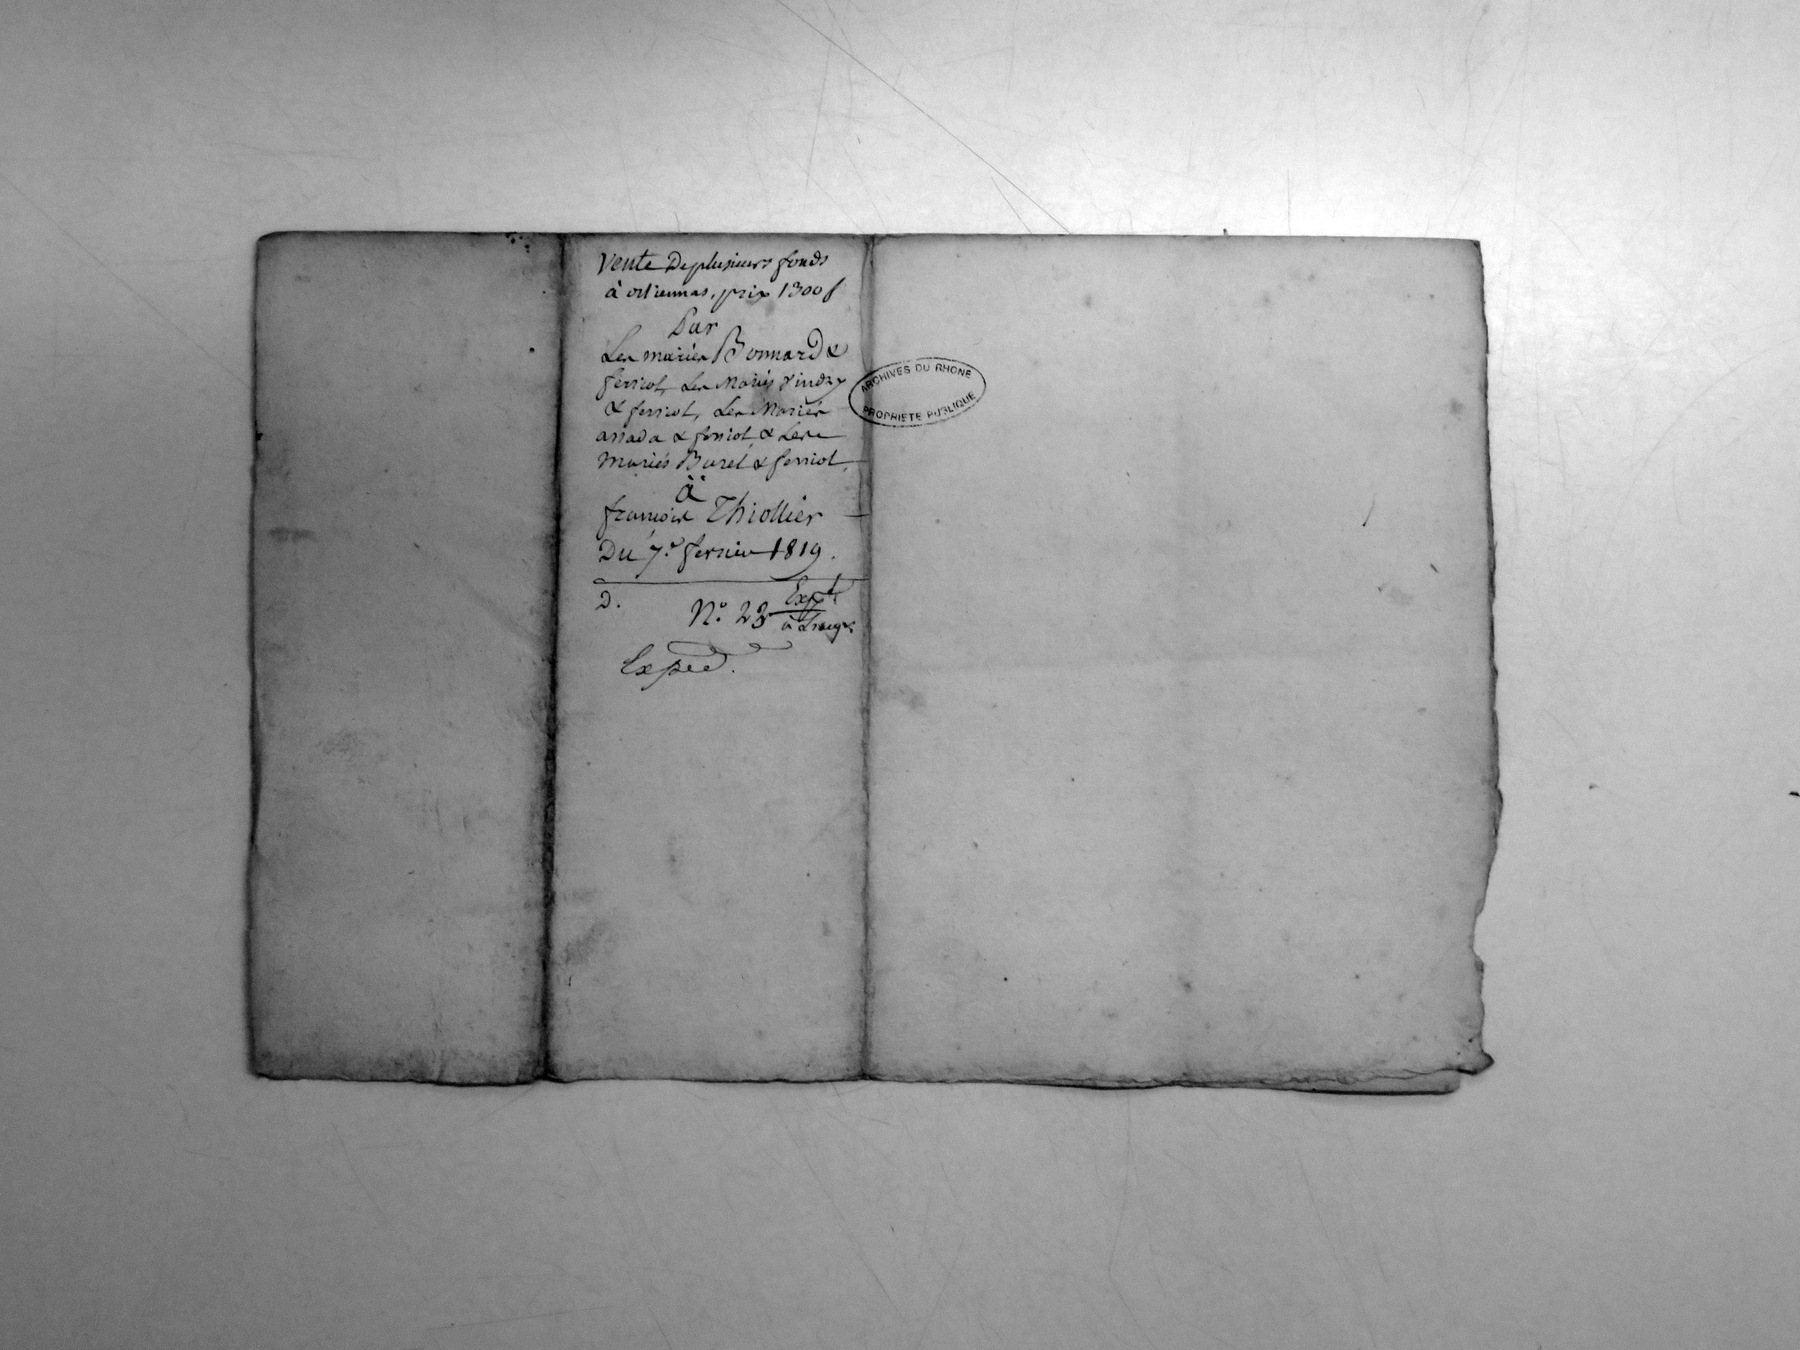 Vente De plusieurs fonds
à orliennas, prix 1300 f
Par
Les mariés Bonnard &
ferriot, Les Mariés Vindry
& ferriot, Les Mariés
assada & ferriot, & Les
Mariés Burel & ferriot,
à
françois Thiollier
Du 7.e fevrier 1819.
D.
N.o 23 Exp.t
à
Exped.
ARCHIVES DU RHONE
PROPRIETE PUBLIQUE